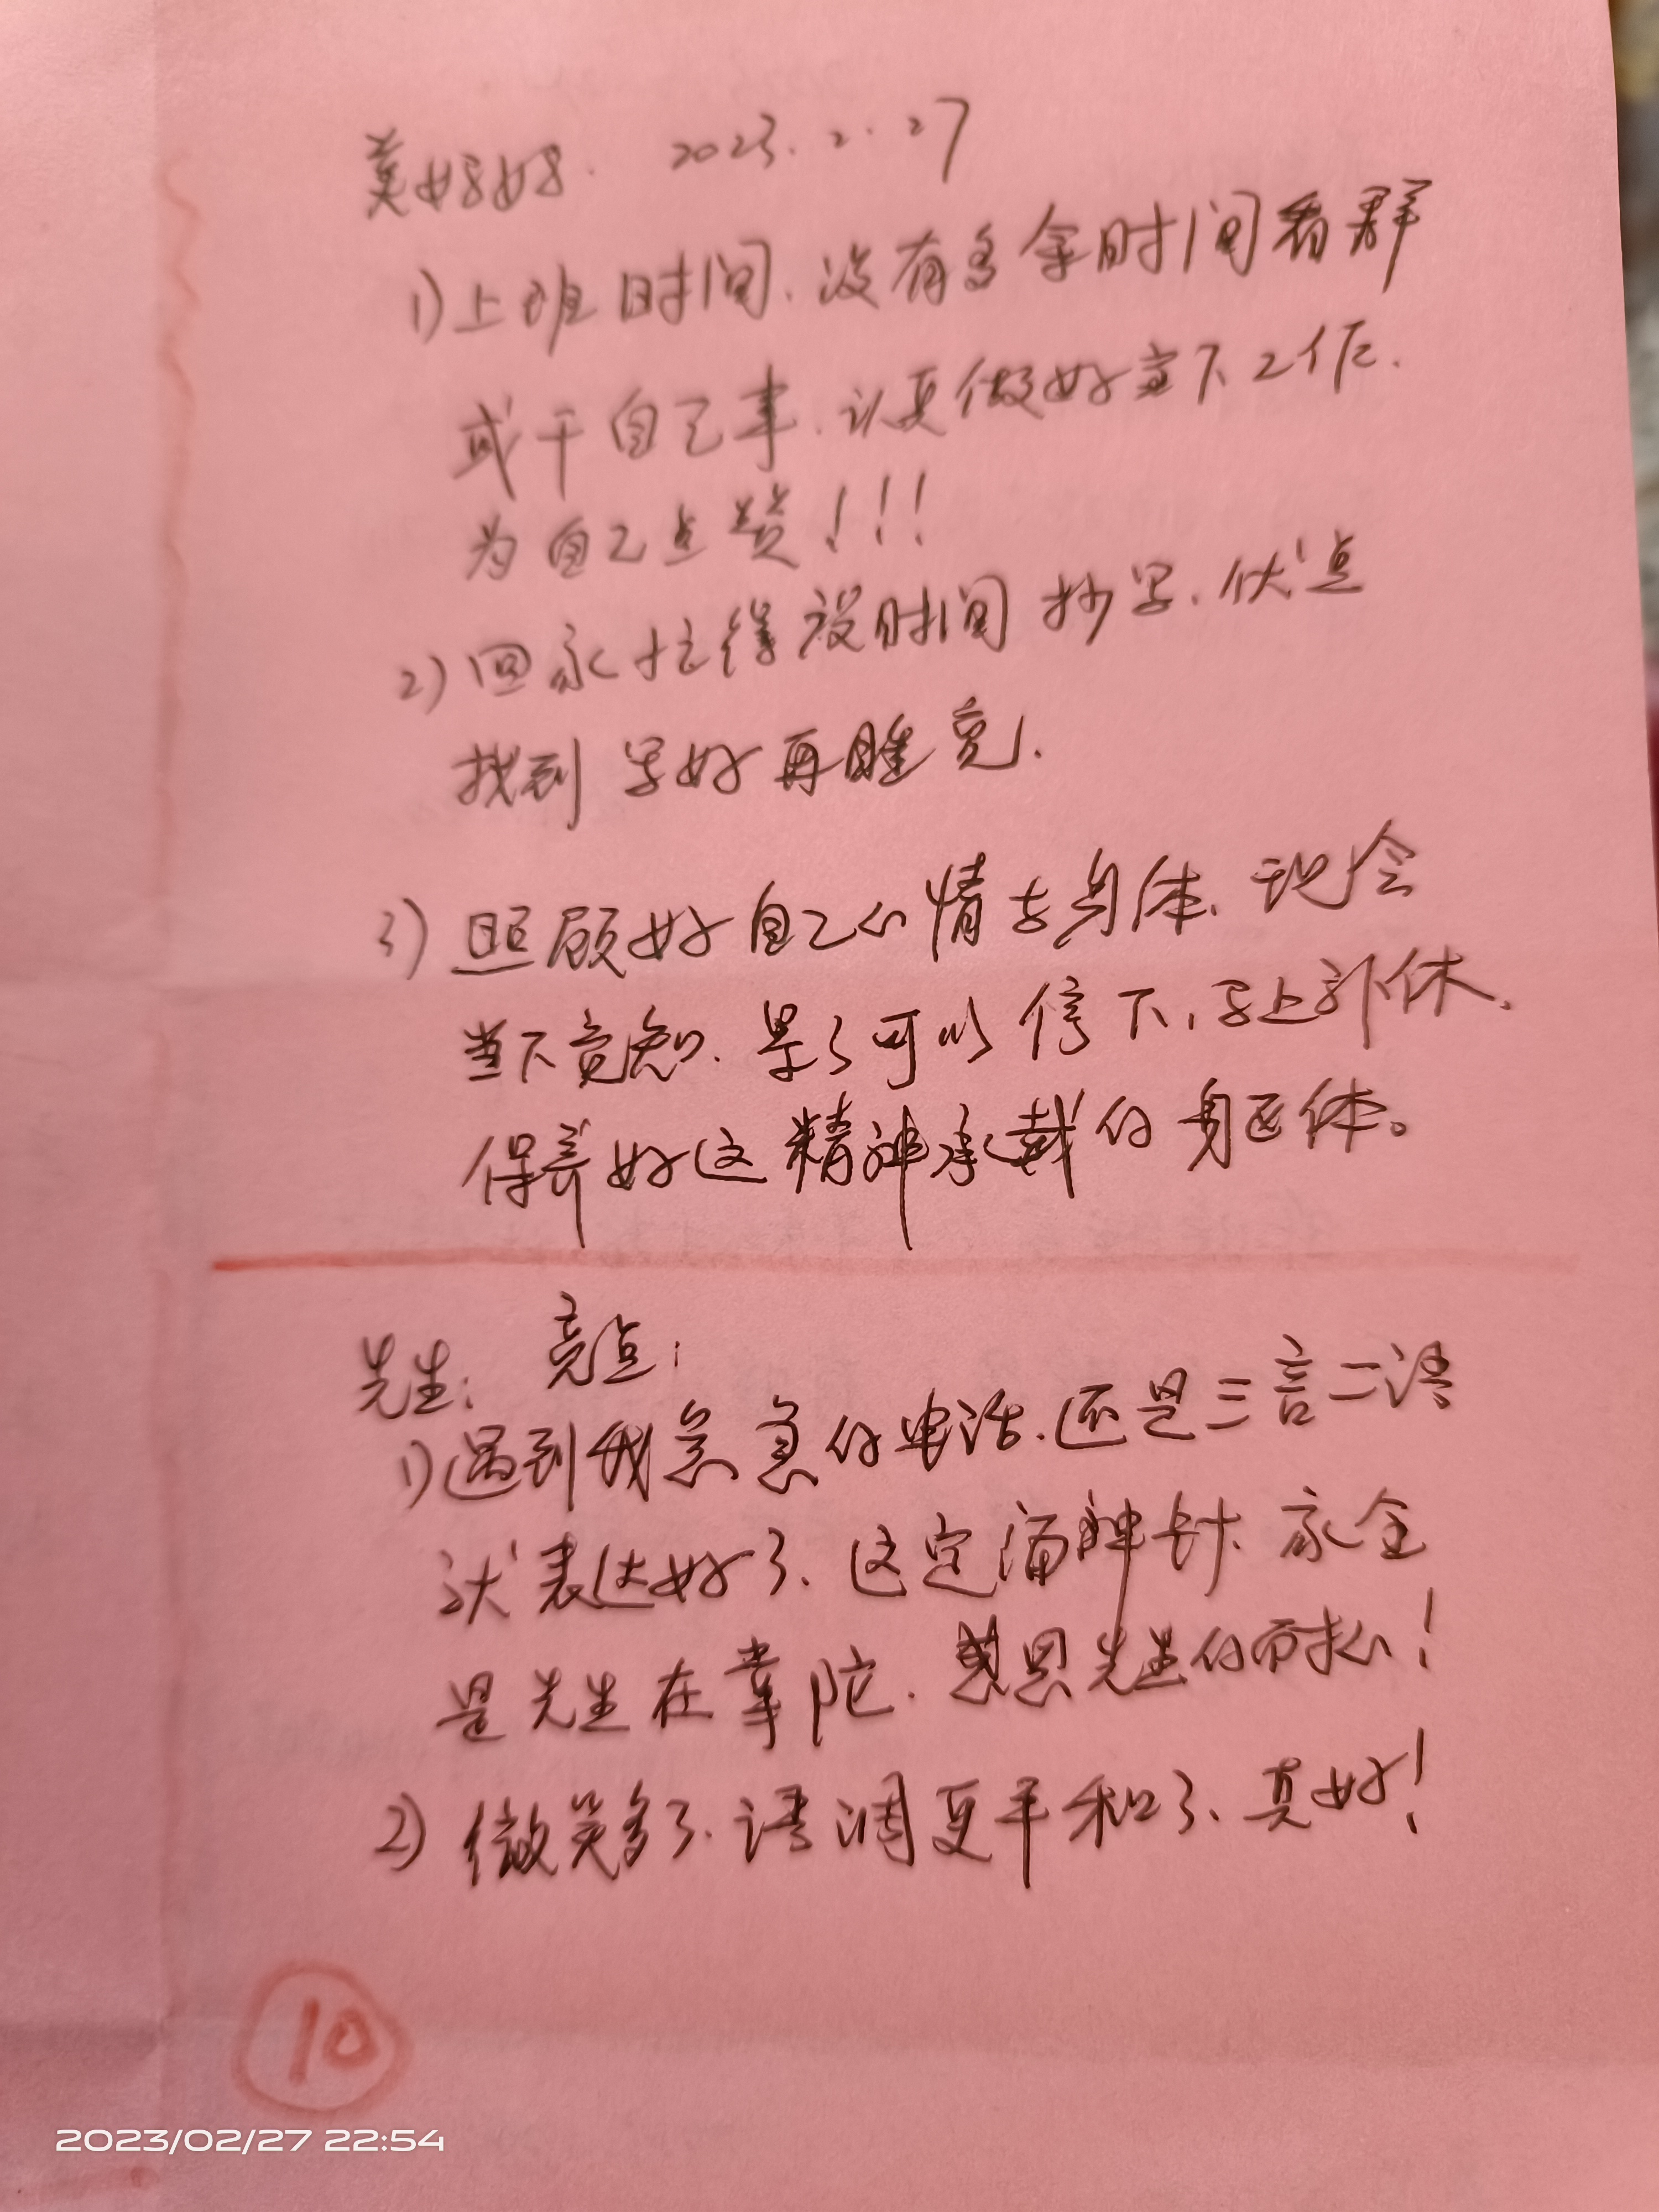 美好好. 2023.2.27
1)上班时间、没有多余时间看群
或干自己事.认真做好当下工作.
为自己点赞!!!
2)回家忙得没时间抄写.优点
找到 写好再睡觉.
3)照顾好自己心情与身体、现会
当下觉知.累了可以停下,马上就休.
保养好这精神承载的身区体。
先生: 亮点:
1)遇到我急急的电话.还是三言二语
就表达好了、这定海神针、家全
是先生在掌陀.感恩先生的而扌!
2)微笑多了.语调更平和了、真好!
10
2023/02/27 22:54